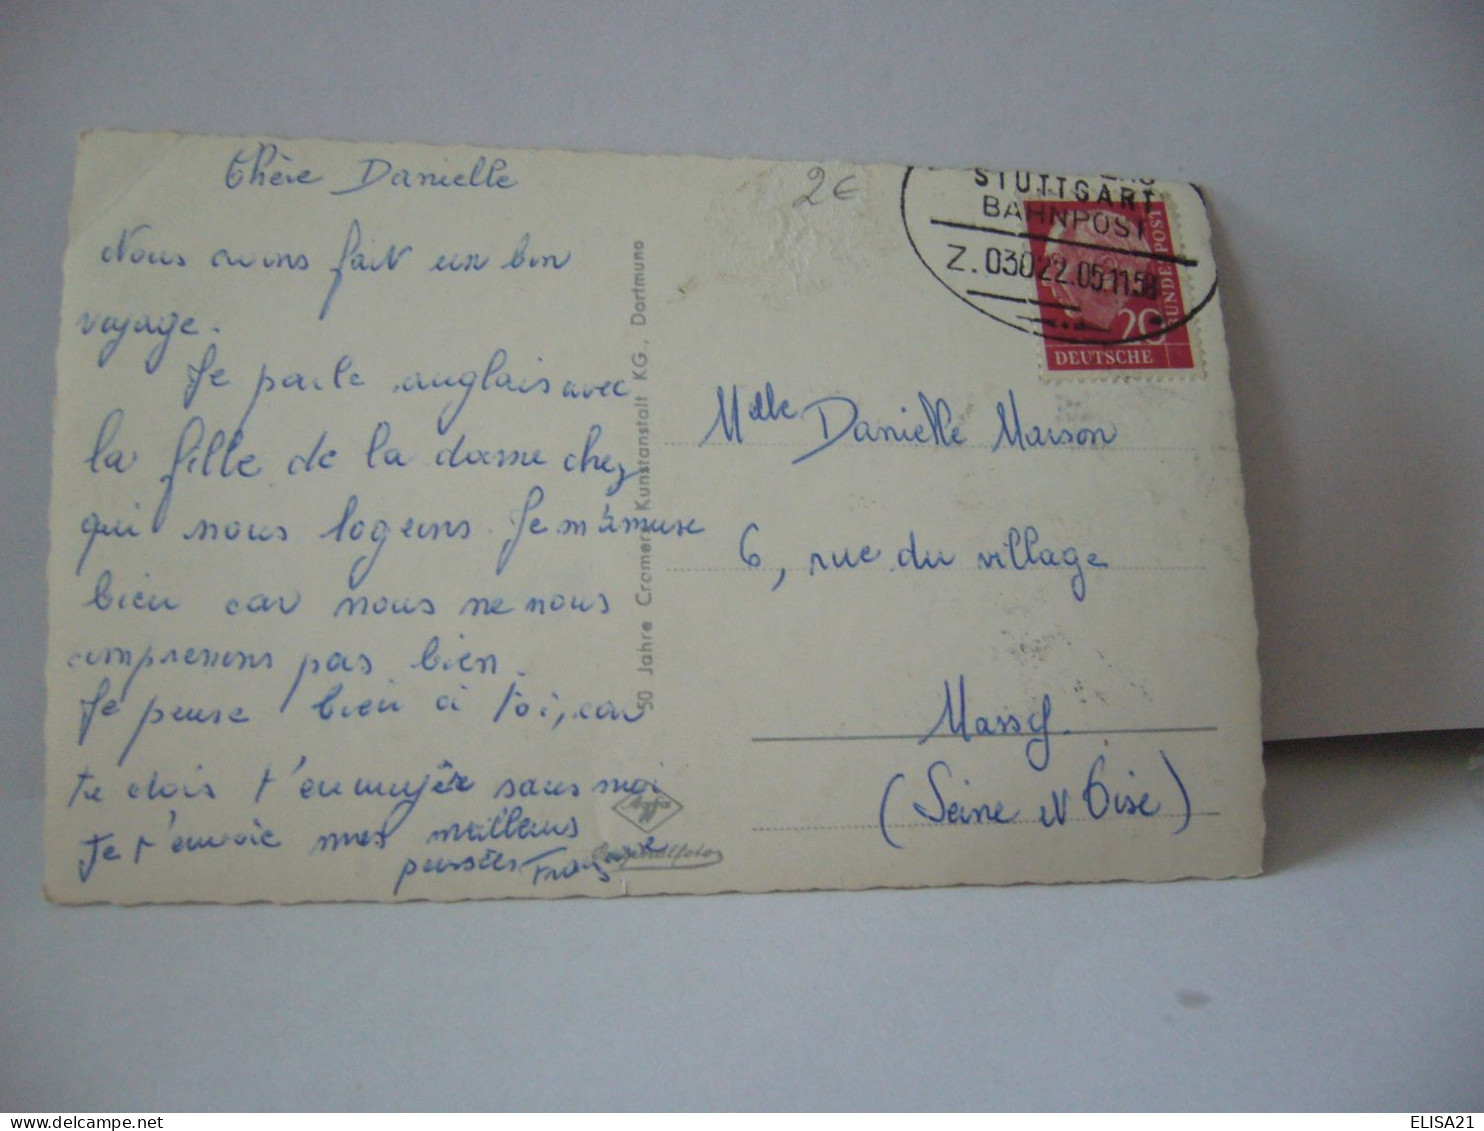 Chère Danielle
Nous avons fait un bon
voyage.
Je parle anglais avec
la fille de la dame chez
qui nous logeons. Je m'amuse
bien car nous ne nous
comprenons pas bien.
Je pense bien à toi, car
tu dois t'ennuyer sans moi
Je t'envoie mes meilleures
pensées Françoise
50 Jahre Cromers Kunstanstalt KG., Dortmund
Agfa
Originalfoto
2€
STUTTGART
BAHNPOST
Z.03022 05.11.58
20
BUNDESPOST
DEUTSCHE
Melle Danielle Marson
6, rue du village
Massy.
(Seine et Oise)
ELISA21